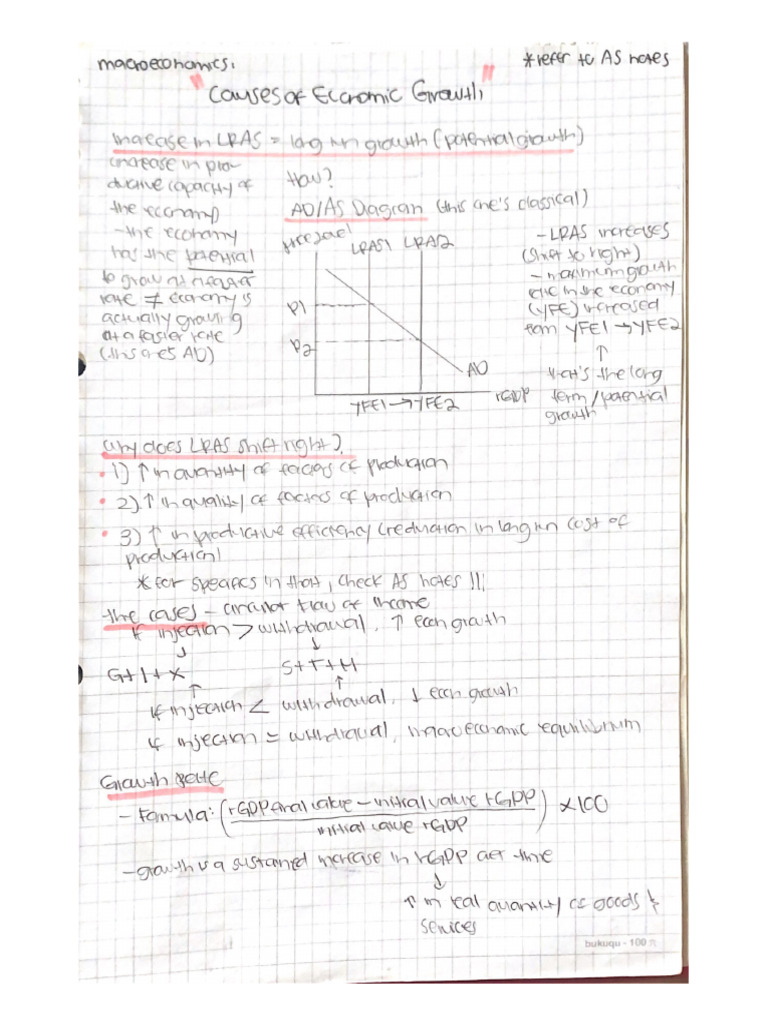 macroeconomics:
*refer to AS notes
"Causes of Economic Growth"
Increase in LRAS = long run growth (potential growth)
increase in pro-
ductive capacity of
the economy
- the economy
has the potential
to grow at a faster
rate ≠ economy is
actually growing
at a faster rate
(this does AD)
How?
AD/AS Diagram (this one's classical)
price level
LRAS1 LRAS2
P1
P2
AD
rGDP
YFE1 → YFE2
- LRAS increases
(shift to right)
- maximum growth
rate in the economy
(YFE) increased
from YFE1 → YFE2
↑
that's the long
term/potential
growth
why does LRAS shift right?
• 1) ↑ in quantity of factors of production
• 2) ↑ in quality of factors of production
• 3) ↑ in productive efficiency (reduction in long run cost of
production)
* for specifics in that, check AS notes !!!
the cases - circular flow of income
if injection > withdrawal, ↑ econ growth
↓ ↓
G+I+X S+T+M
↑ ↑
if injection < withdrawal, ↓ econ growth
if injection = withdrawal, macroeconomic equilibrium
Growth Rate
- Formula: (rGDP final value - initial value rGDP / initial value rGDP) ×100
- growth is a sustained increase in rGDP over time
↓
↑ in real quantity of goods &
services
bukuqu - 100